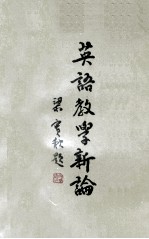 英語教學新論
梁實秋題